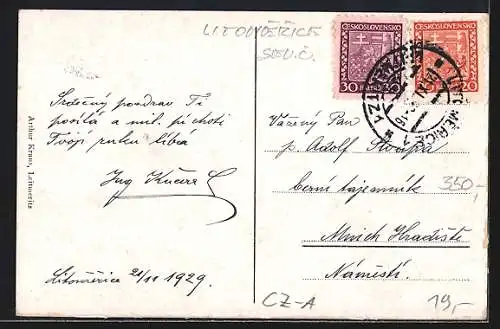 LITOMĚŘICE
SEV.Č.
ČESKOSLOVENSKO
ČESKOSLOVENSKO
30 30
20
LITOMĚŘICE
Srdečný pozdrav Ti
posílá a mil. p. choti
Tvojí ruku líbá
Ing Kučera
Litoměřice 21/11 1929.
Arthur Kraus, Leitmeritz
Vážený Pan
p. Adolf
berní tajemník
350,-
Mnich Hradiště
Náměstí.
CZ-A
19,-